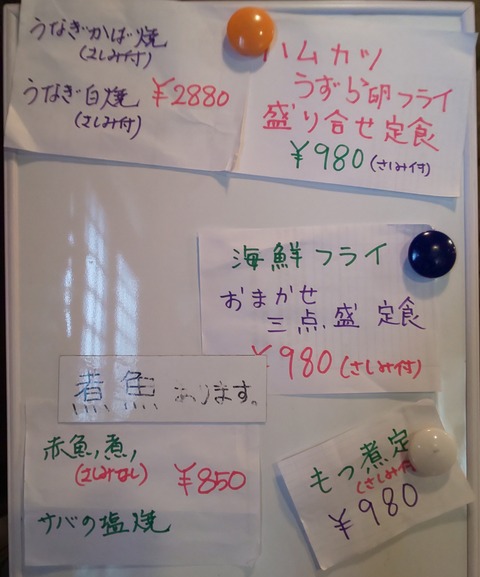 うなぎかば焼
(さしみ付)
うなぎ白焼 ¥2880
(さしみ付)
ハムカツ
うずら卵フライ
盛り合せ定食
¥980 (さしみ付)
海鮮フライ
おまかせ
三点盛 定食
¥980 (さしみ付)
煮魚 あります。
赤魚煮
(さしみなし) ¥850
サバの塩焼
もつ煮定
(さしみ付
¥980